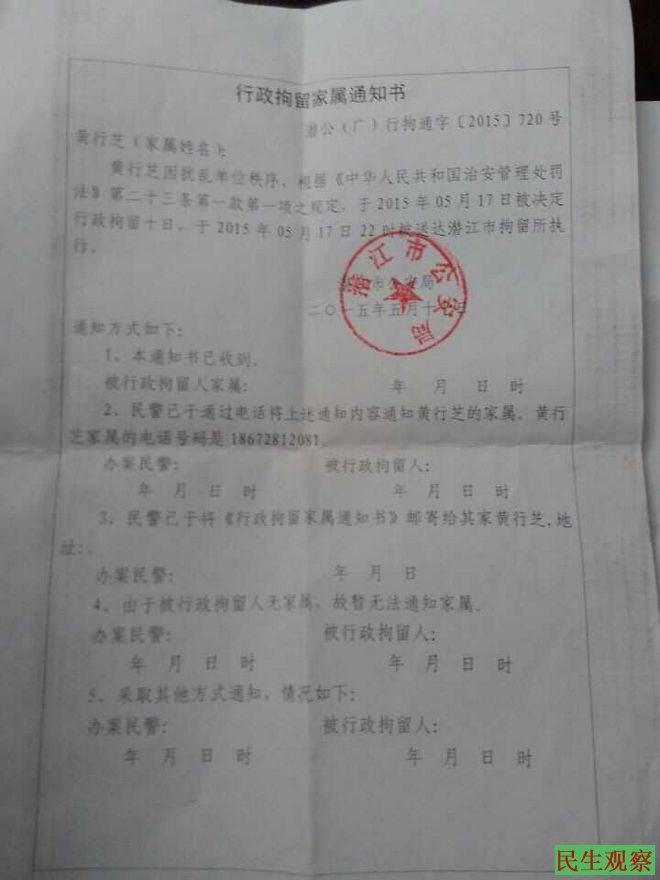 行政拘留家属通知书
潜公（广）行拘通字〔2015〕720号
黄行芝（家属姓名）：
黄行芝因扰乱单位秩序，根据《中华人民共和国治安管理处罚
法》第二十三条第一款第一项之规定，于2015年05月17日被决定
行政拘留十日，于2015年05月17日22时被送达潜江市拘留所执
行。
潜江市公安局
二〇一五年五月十 日
通知方式如下：
1、本通知书已收到。
被行政拘留人家属： 年 月 日 时
2、民警已于通过电话将上述通知内容通知黄行芝的家属。黄行
芝家属的电话号码是18672812081。
办案民警： 被行政拘留人：
年 月 日 时 年 月 日 时
3、民警已于将《行政拘留家属通知书》邮寄给其家黄行芝，地
址：。
办案民警： 年 月 日
4、由于被行政拘留人无家属，故暂无法通知家属。
办案民警： 被行政拘留人：
年 月 日 时 年 月 日 时
5、采取其他方式通知，情况如下：
办案民警： 被行政拘留人：
年 月 日 时 年 月 日 时
潜江市公安局
民生观察